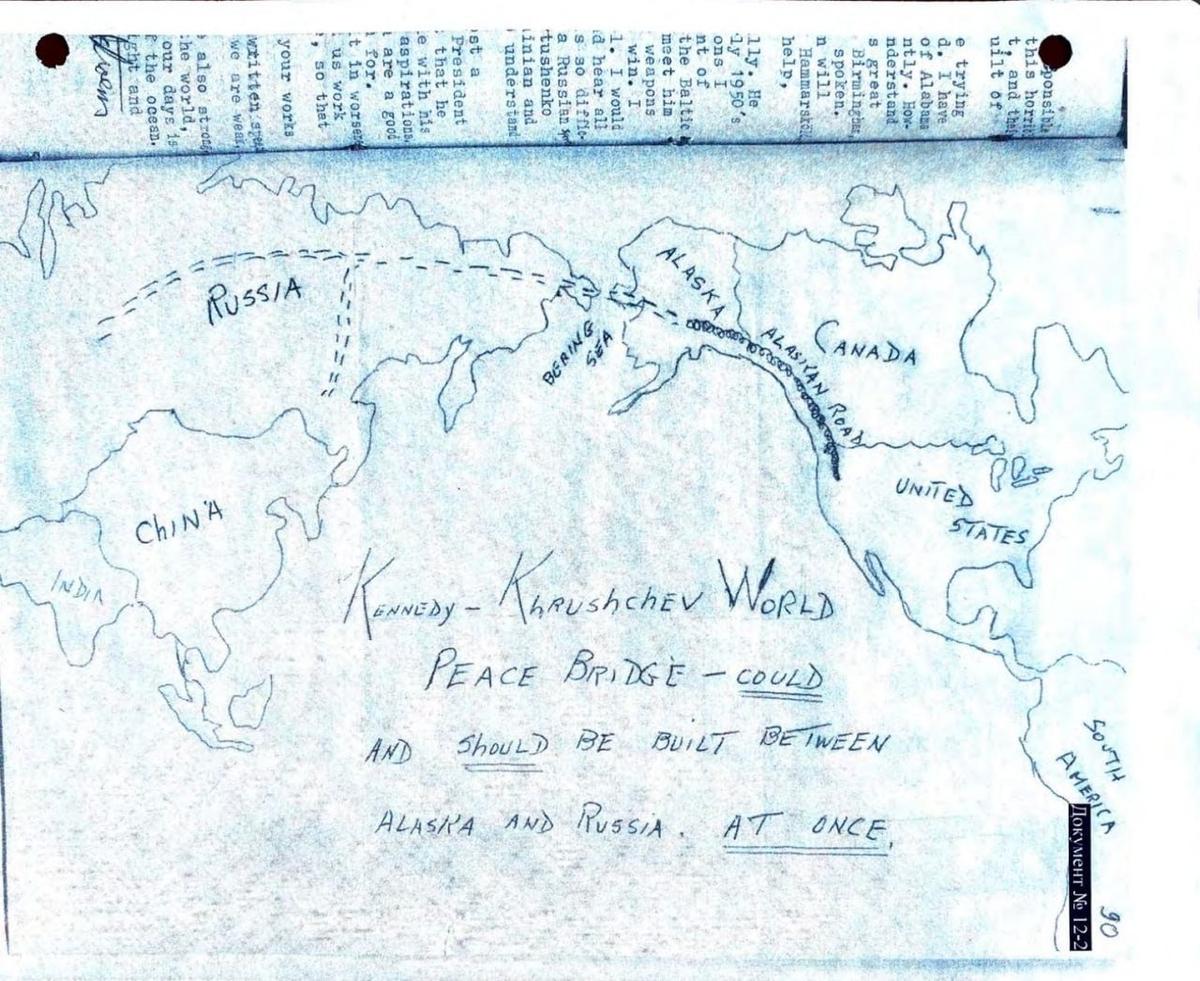 sponsible
this horri
t, and thei
uilt of
e trying
d. I have
of Alabama
ntly. How-
nderstand
s great
Birmingham
spoken.
n will
Hammarskö
help,
lly. He
ly 1950's
ons I
nt of
the Baltic
meet him
weapons
win. I
l. I would
d hear all
s so diffic
a Russian
tushenko
inian and
understand
st a
President
, that he
e with his
aspirations
are a good
for.
t in worse
us work
, so that
your works
written
we are weak
also strong
he world,
our days is
f the ocean.
ght and
RUSSIA
ALASKA
BERING
SEA
ALASKAN ROAD
CANADA
UNITED
STATES
CHINA
INDIA
KENNEDY – KHRUSHCHEV WORLD
PEACE BRIDGE – COULD
AND SHOULD BE BUILT BETWEEN
ALASKA AND RUSSIA. AT ONCE.
SOUTH
AMERICA
Документ № 12-2
90